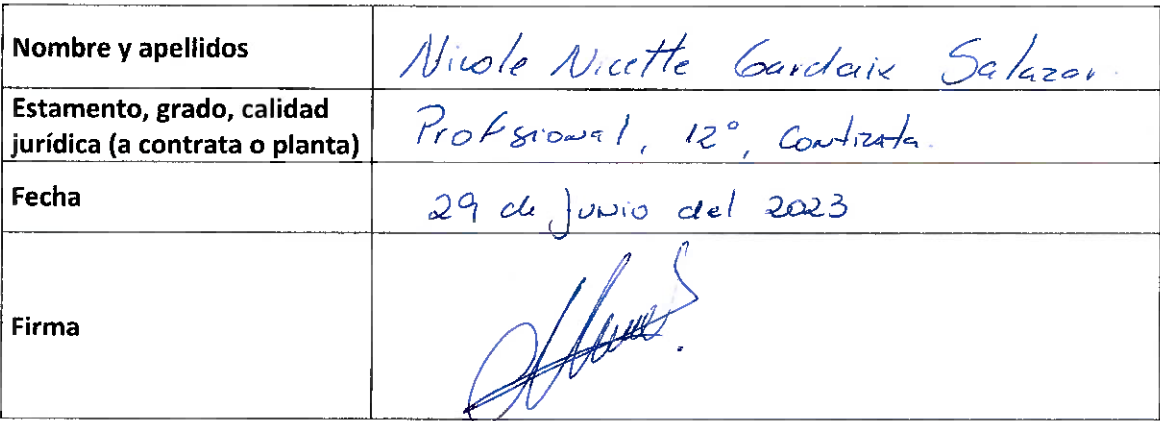 Nombre y apellidos
Nicole Nicette Gardaix Salazar.
Estamento, grado, calidad
jurídica (a contrata o planta)
Profsional, 12°, Contrata.
Fecha
29 de Junio del 2023
Firma